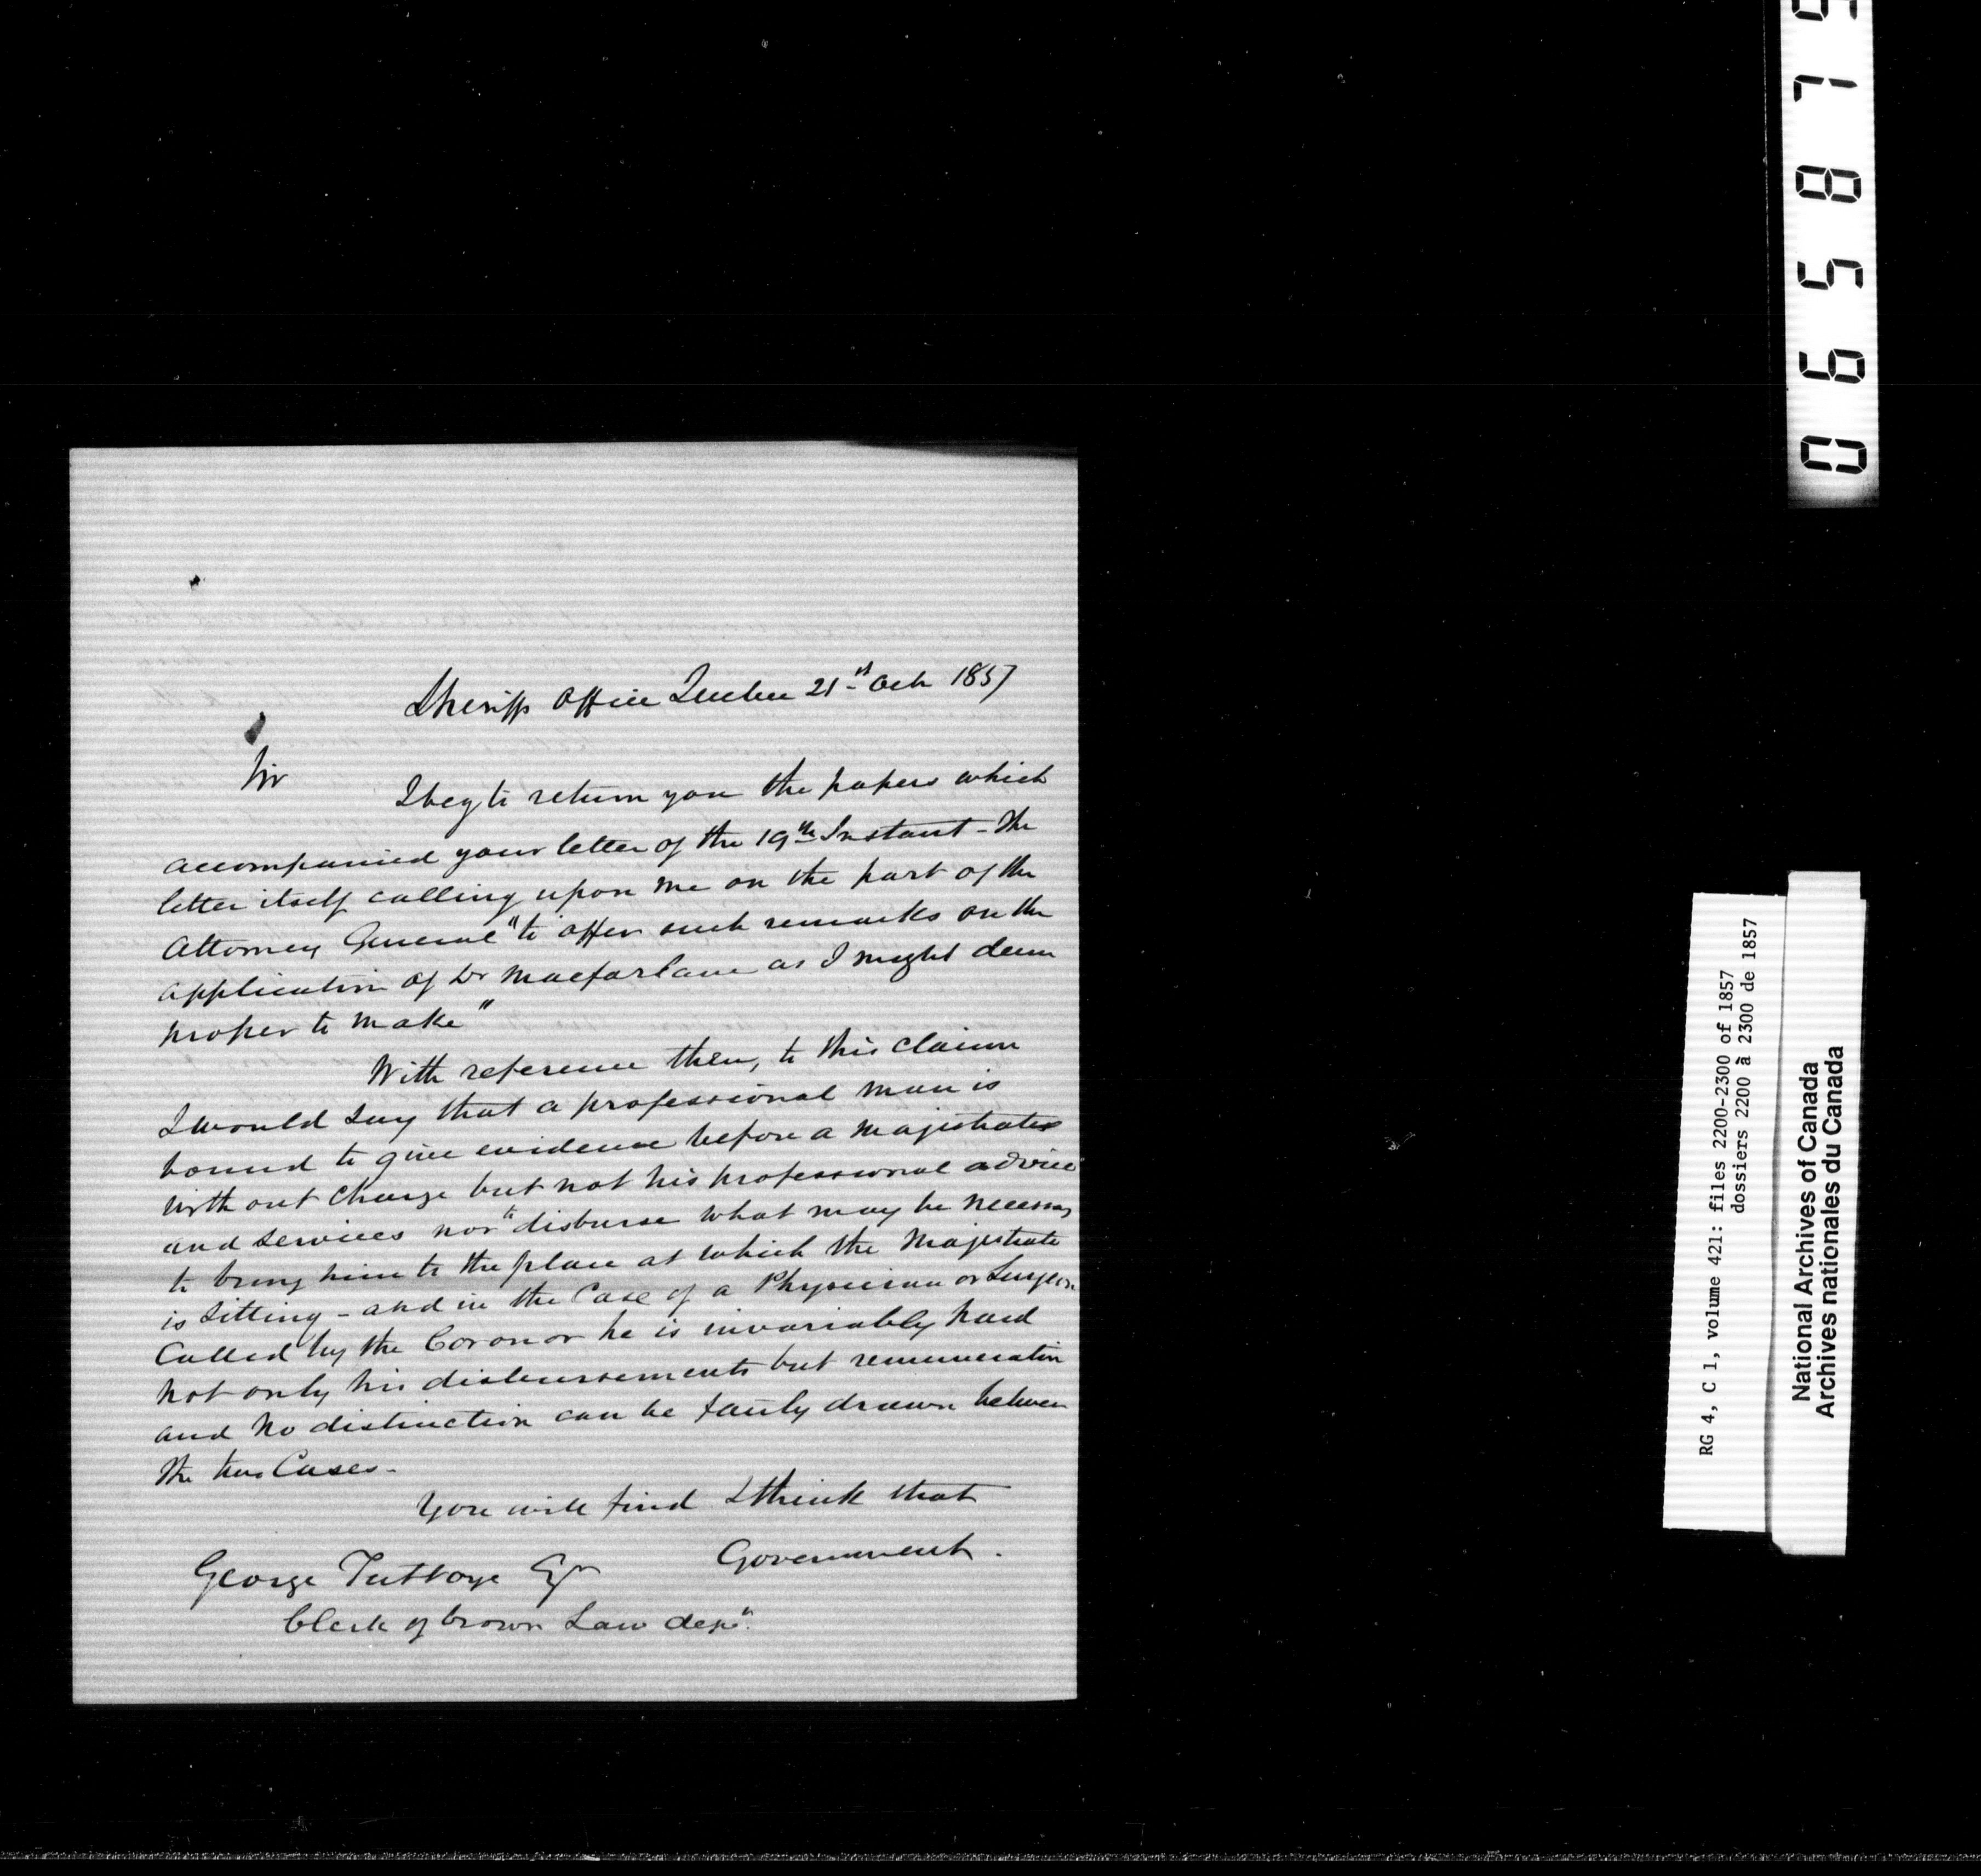 Sheriffs Office Quebec 21st Octr 1857
Sir
I beg to return you the papers which
accompanied your letter of the 19th Instant - The
letter itself calling upon me on the part of the
Attorney General "to offer such remarks on the
application of Dr Macfarlane as I might deem
proper to make"
With reference then, to this claim
I would say that a professional man is
bound to give evidence before a Majistrate
with out charge but not his professional advice
and services nor to disburse what may be necessary
to bring him to the place at which the Majistrate
is sitting - and in the Case of a Physician or Surgeon
Called by the Coronor he is invariably paid
not only his disbursements but remuneration
and no distinction can be fairly drawn between
the two Cases -
You will find I think that
Government.
George Futvoye Esqr
Clerk of Crown Law dept.
065879
RG 4, C 1, volume 421: files 2200-2300 of 1857
dossiers 2200 à 2300 de 1857
National Archives of Canada
Archives nationales du Canada